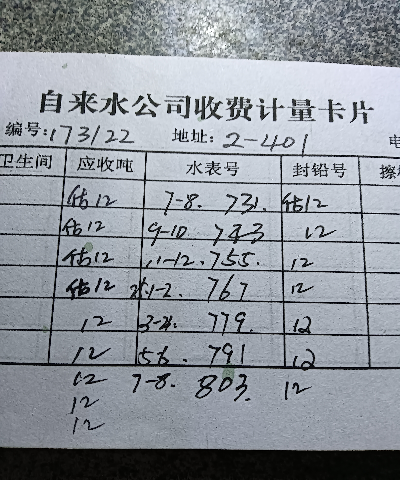 自来水公司收费计量卡片
编号:173122 地址:2-401 电
卫生间 应收吨 水表号 封铅号 擦
估12 7-8. 731. 估12
估12 9-10 743 12
估12 11-12. 755. 12
估12 1-2. 767 12
12 3-4. 779. 12
12 5-6. 791 12
12 7-8. 803. 12
12
12